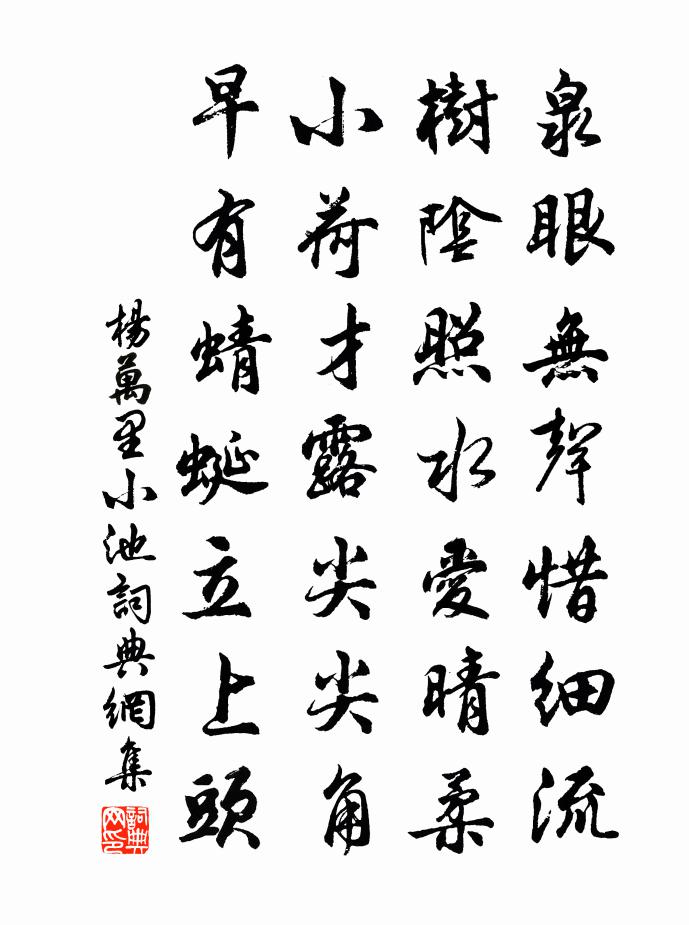 泉眼無聲惜細流
樹陰照水愛晴柔
小荷才露尖尖角
早有蜻蜓立上頭
楊萬里小池詞典網集
詞典网印